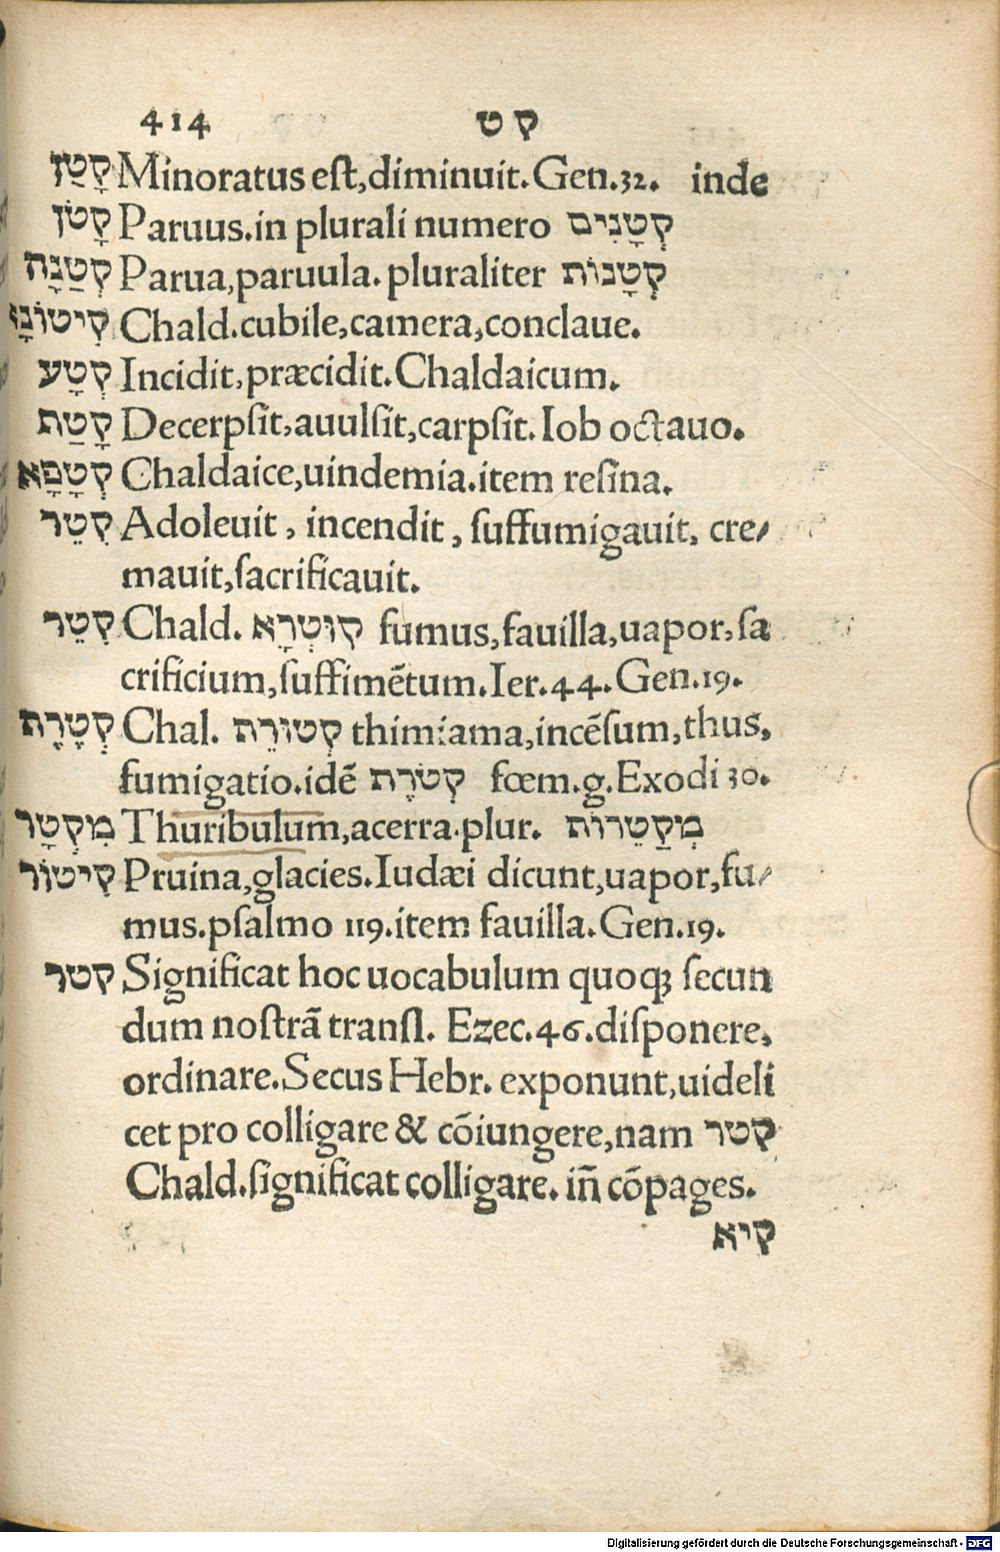 414 קט
קָטַן Minoratus eſt,diminuit.Gen.32. inde
קָטֹן Paruus.in plurali numero קְטָנִים
קְטַנָּה Parua,paruula.pluraliter קְטָנוֹת
Chald.cubile,camera,conclaue.
קְטָע Incidit,præcidit.Chaldaicum.
קָטַת Decerpſit,auulſit,carpſit.Iob octauo.
קְטָפָא Chaldaice,uindemia.item reſina.
קִטֵּר Adoleuit, incendit, ſuffumigauit, cre/
mauit,ſacrificauit.
קִטֵר Chald. קוּטְרָא fumus,fauilla,uapor,ſa
crificium,ſuffimētum.Ier.44.Gen.19.
Chal. קְטוֹרֵת thimiama,incēſum,thus,
fumigatio.idē קְטֹרֶת fœm.g.Exodi 30.
מִקְטָר Thuribulum,acerra.plur. מְקַטֵרוֹת
קִיטוֹר Pruina,glacies.Iudæi dicunt,uapor,fu/
mus.pſalmo 119.item fauilla.Gen.19.
קטר Significat hoc uocabulum quoqꝫ ſecun
dum noſtrā tranſl. Ezec.46.diſponere,
ordinare.Secus Hebr. exponunt,uideli
cet pro colligare & cōiungere,nam קטר
Chald.ſignificat colligare. iñ cōpages.
קִיא
Digitalisierung gefördert durch die Deutsche Forschungsgemeinschaft - DFG